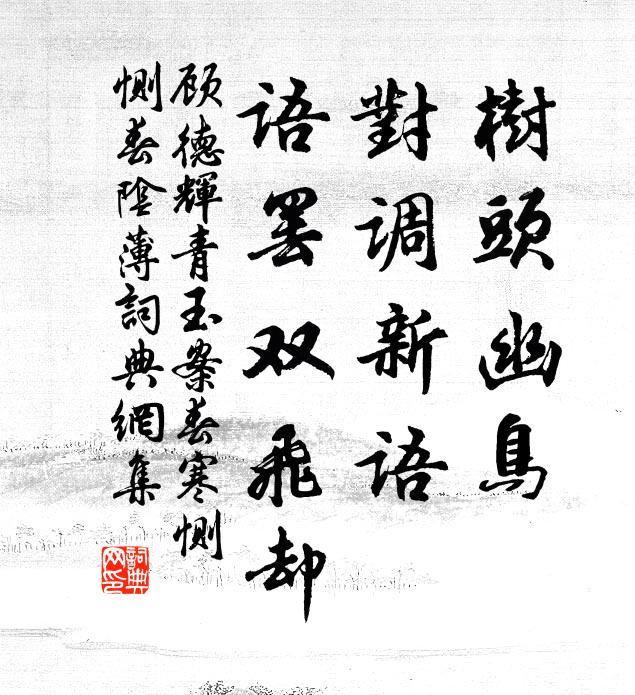 樹頭幽鳥
對调新語
語罷双飛却
顾德輝青玉案春寒恻
恻春陰薄詞典網集
詞典网印